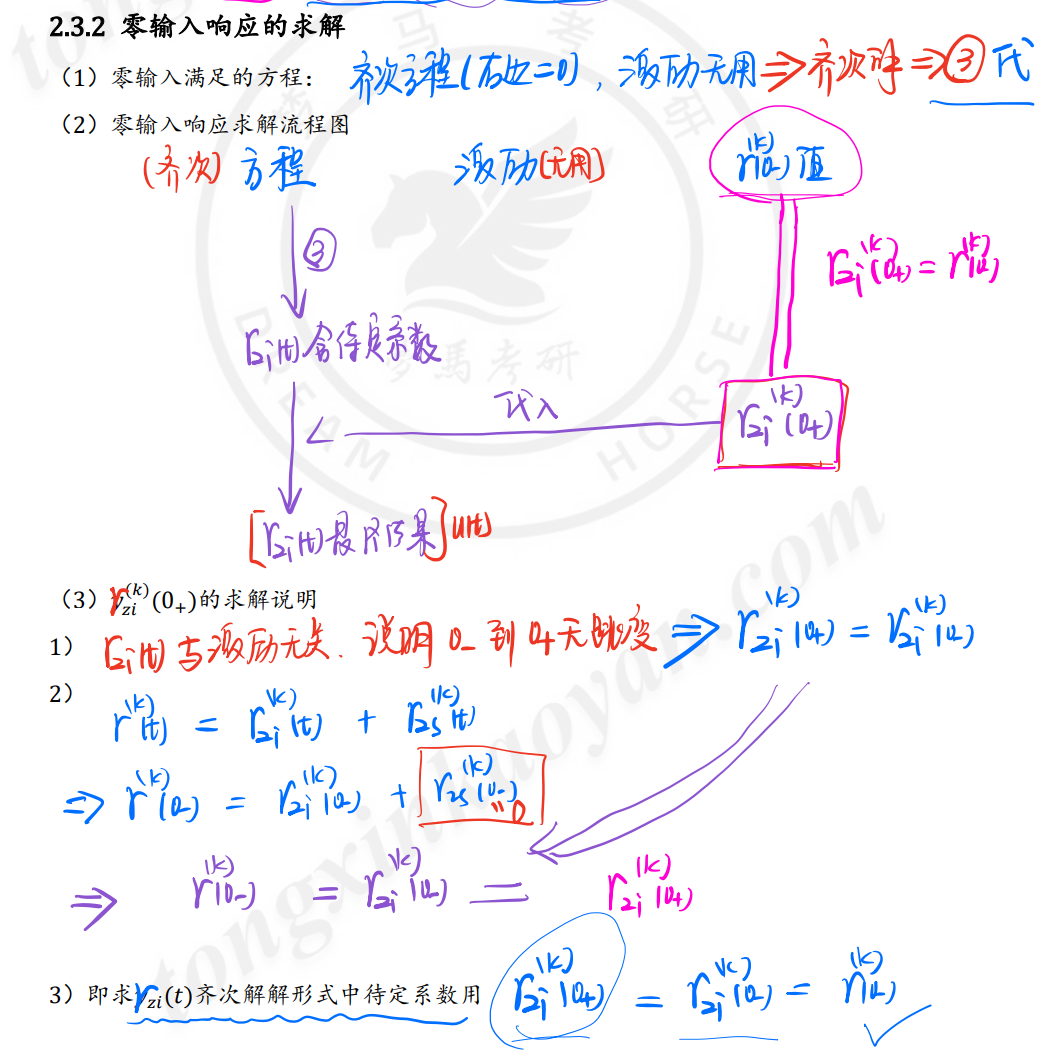 2.3.2 零输入响应的求解
（1）零输入满足的方程： 齐次方程(右边=0)，激励无用⇒齐次解⇒③代
（2）零输入响应求解流程图
(齐次) 方程 激励(无用) r^(k)(0-)值
③
r_zi^(k)(0+) = r^(k)(0-)
r_zi(t)含待定系数
代入
r_zi^(k)(0+)
[r_zi(t)最终结果]u(t)
（3）r_zi^(k)(0+)的求解说明
1） r_zi(t)与激励无关. 说明0-到0+无跳变 ⇒ r_zi^(k)(0+) = r_zi^(k)(0-)
2）
r^(k)(t) = r_zi^(k)(t) + r_zs^(k)(t)
⇒ r^(k)(0-) = r_zi^(k)(0-) + r_zs^(k)(0-)
=0
⇒ r^(k)(0-) = r_zi^(k)(0-) = r_zi^(k)(0+)
3）即求r_zi(t)齐次解解形式中待定系数用 r_zi^(k)(0+) = r_zi^(k)(0-) = r^(k)(0-)
夢馬考研
DREAM HORSE
tongxinkaoyan.com